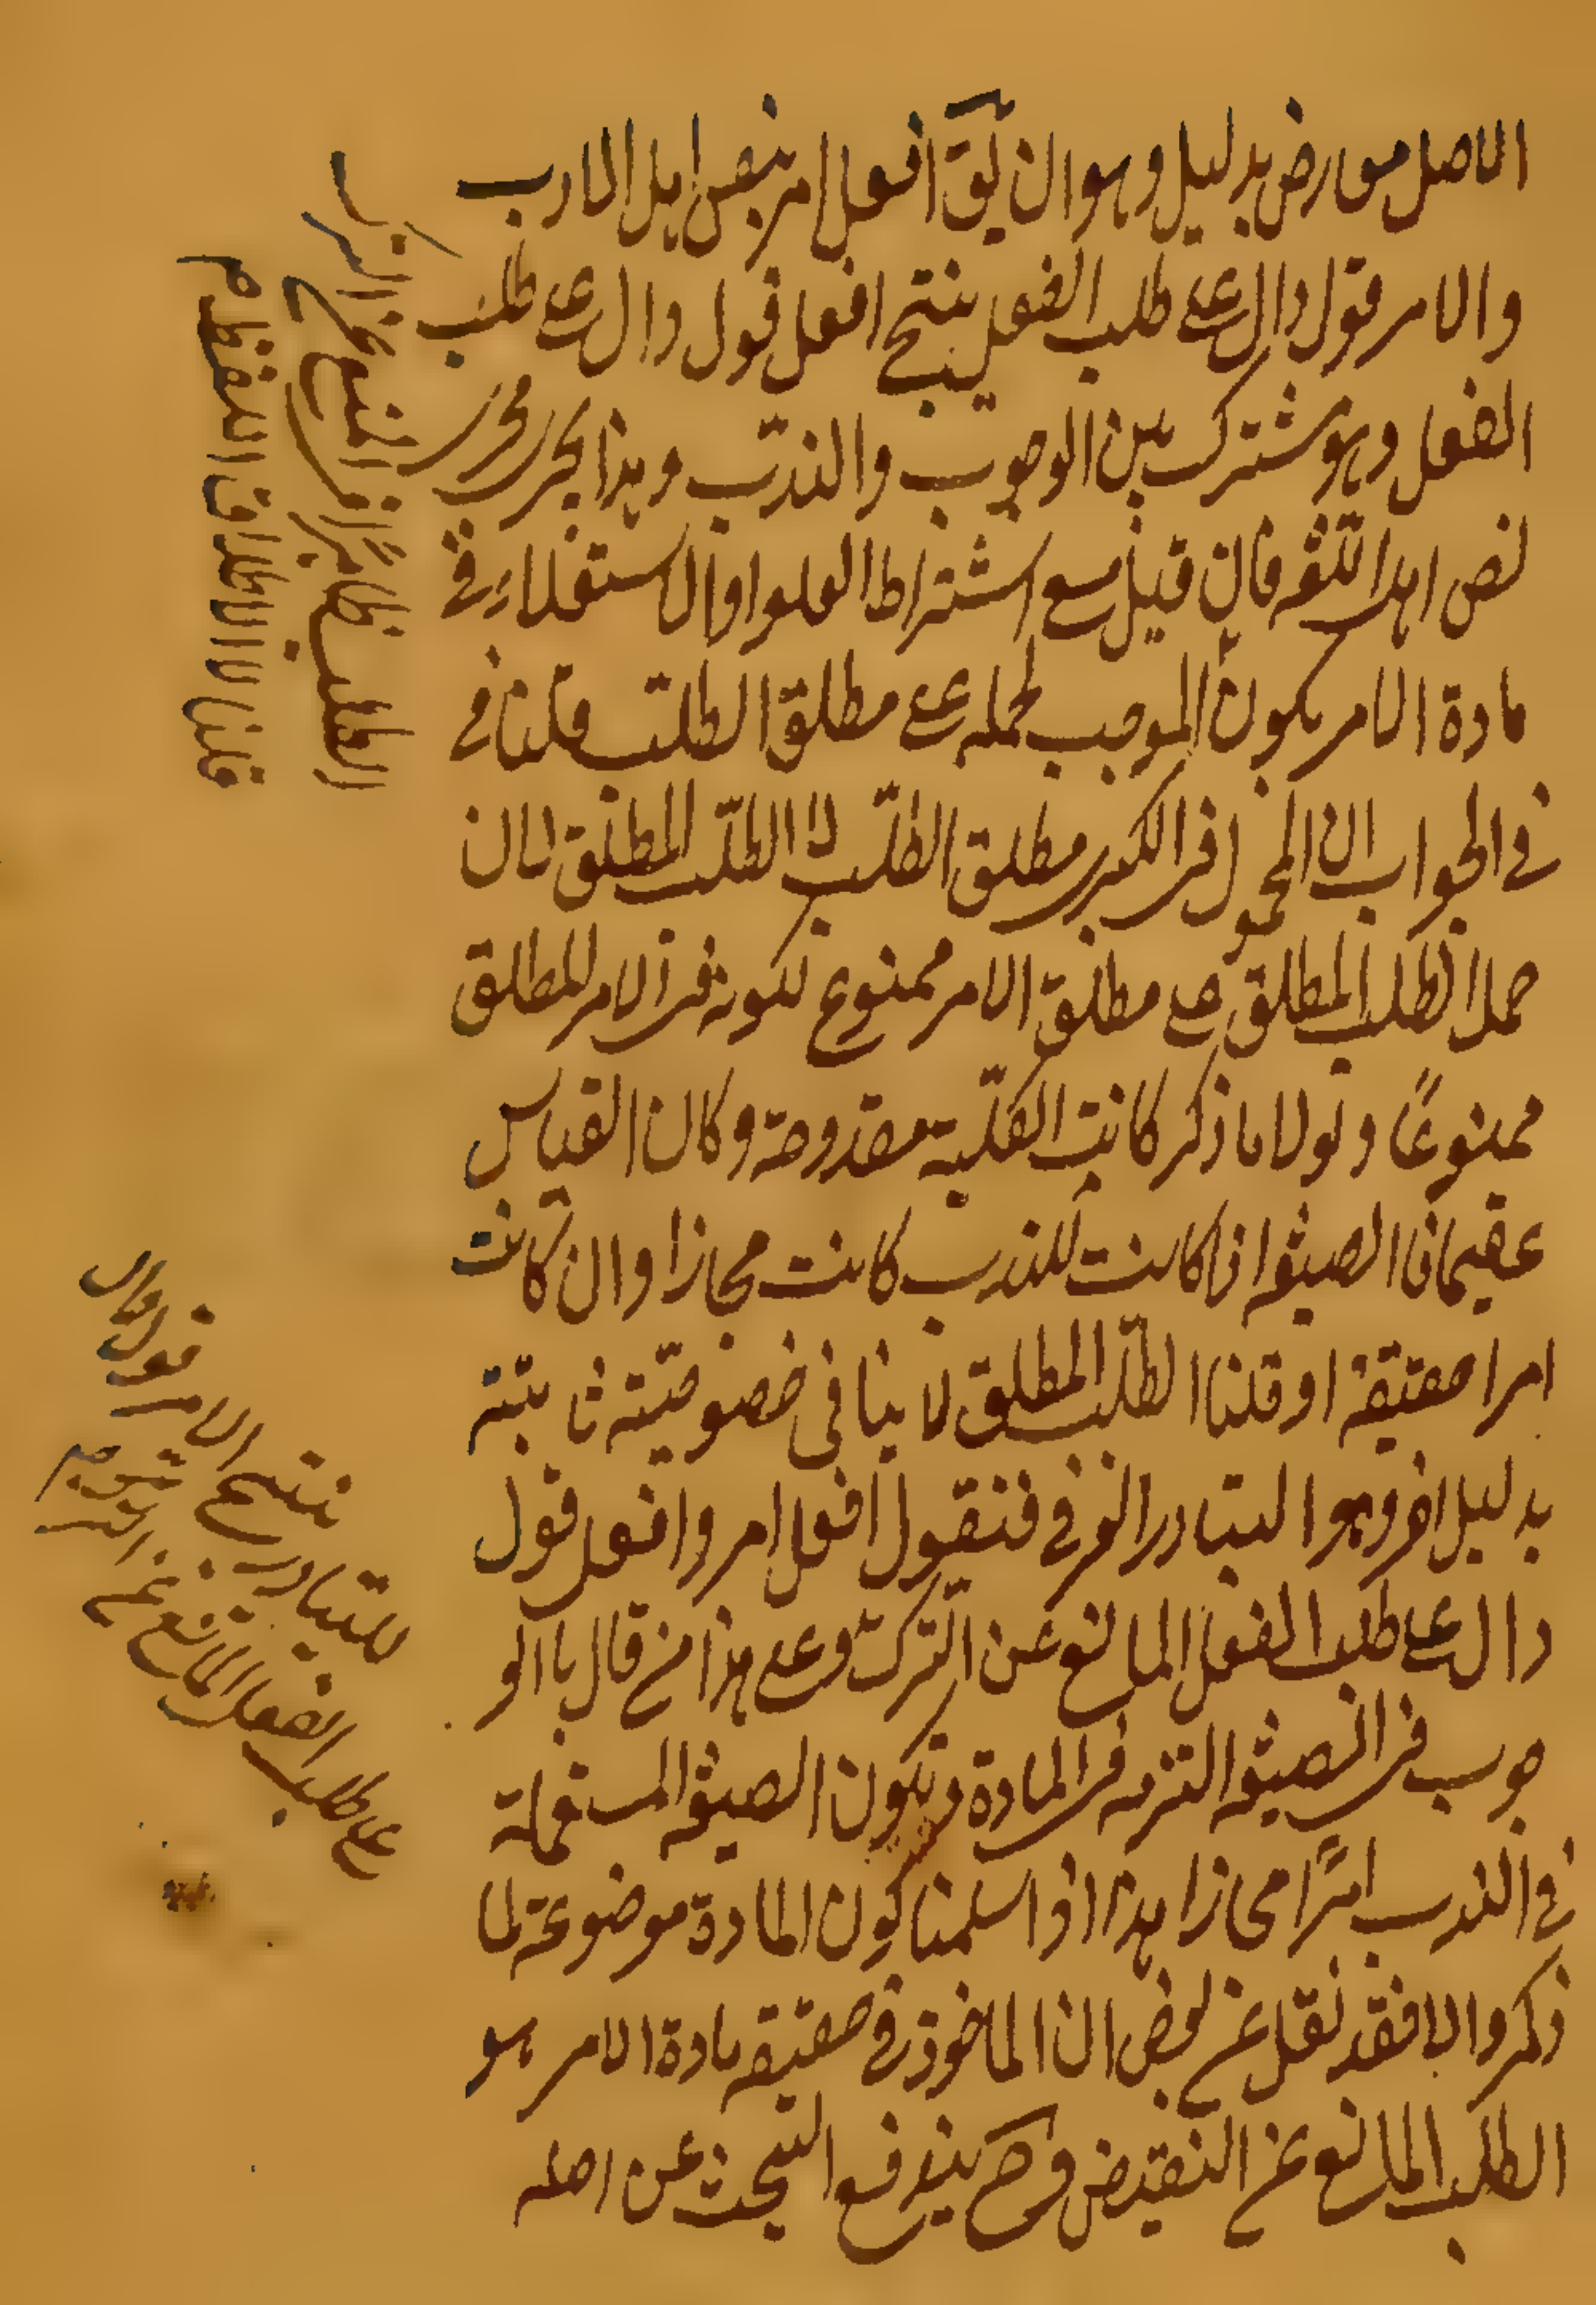 الاصل معارض بدليل وهو ان يق افعل امر بنص اهل الادب
والامر قول دال على طلب الفعل ينتج افعل قول دال على طلب
الفعل وهو مشترك بين الوجوب والندب وهذا يجرى مجرى
نص اهل اللغه فان قيل مع اشتراط العلو او الاستعلاء فى
مادة الامر يكون الموجب لحمله على مطلق الطلب قلنا فى
فى الجواب ان المحمول فى الكبرى مطلق الطلب لا الطلب المطلق لان
حمل الطلب المطلق على مطلق الامر ممنوع لكونه فى الامر المطلق
ممنوعًا ولولا ما ذكر كانت الكلية مقدوحة وكان القياس
عقيما فان الصيغه اذا كانت للندب كانت مجازا وان كانت
امرا حقيقة او قلنا الطلب المطلق لا ينافى خصوصية ثابتة
بدليل اخر وهو التبادر العرفى فنقول افعل امر وافعل قول
دال على طلب الفعل المانع عن الترك وعلى هذا من قال بالو
جوب فى الصيغه التزمه فى المادة وتكون الصيغه المستعملة
فى الندب امرًا مجازا هذا اذا سلمنا كون المادة موضوعة لما
ذكروا والا فقد نقل عن بعض ان الماخوذ فى حقيقة مادة الامر هو
الطلب المانع عن النقيض وح يندفع البحث عن اصله
الطلب ظاهرًا فى المنع عن الترك
قلنا الاطلاق اللفظ
ينتج الامر قول دال
على طلب الفعل المانع عن
للتبادر